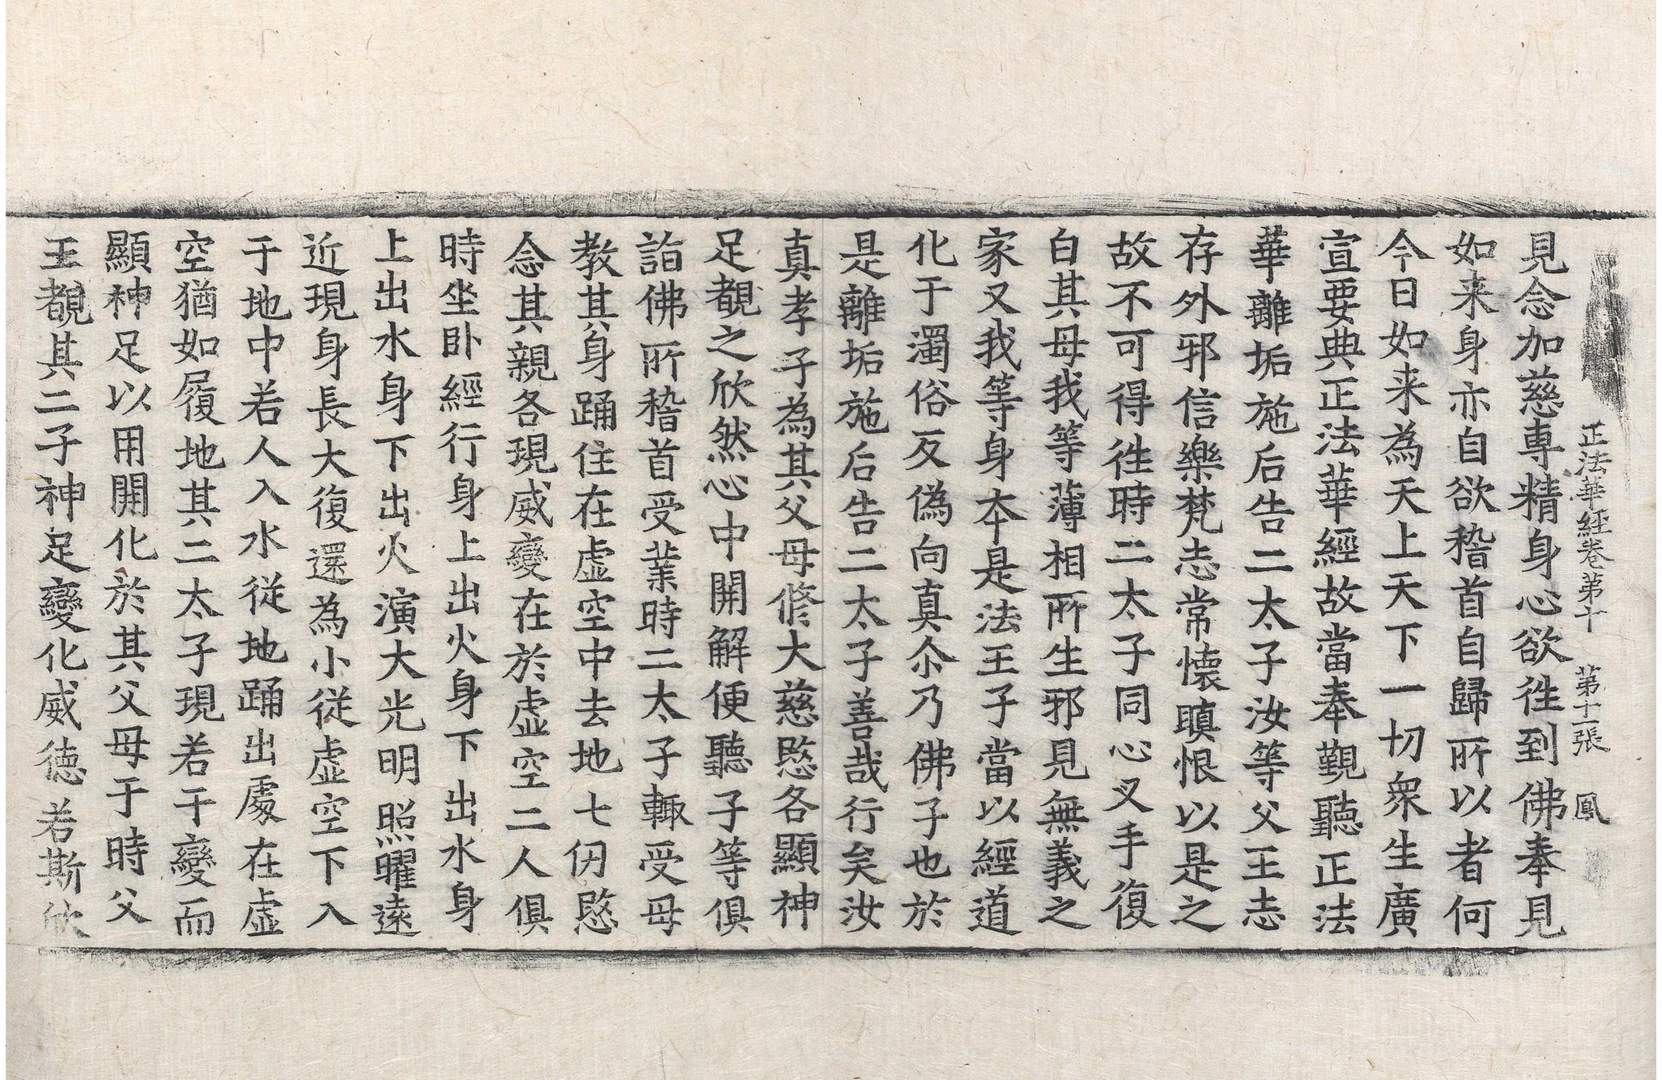 正法華經卷第十 第十一張 鳳
見念加慈專精身心欲徃到佛奉見
如来身亦自欲稽首自歸所以者何
今日如来為天上天下一切眾生廣
宣要典正法華經故當奉覲聽正法
華離垢施后告二太子汝等父王志
存外邪信樂梵志常懷瞋恨以是之
故不可得徃時二太子同心叉手復
白其母我等薄相所生邪見無義之
家又我等身夲是法王子當以經道
化于濁俗反偽向真尒乃佛子也於
是離垢施后告二太子善哉行矣汝
真孝子為其父母修大慈愍各顯神
足覩之欣然心中開解便聽子等俱
詣佛所稽首受業時二太子輙受母
教其身踊住在虛空中去地七仞愍
念其親各現威變在於虛空二人俱
時坐臥經行身上出火身下出水身
上出水身下出火演大光明照曜遠
近現身長大復還為小從虛空下入
于地中若人入水從地踊出處在虛
空猶如履地其二太子現若干變而
顯神足以用開化於其父母于時父
王覩其二子神足變化威德若斯欣